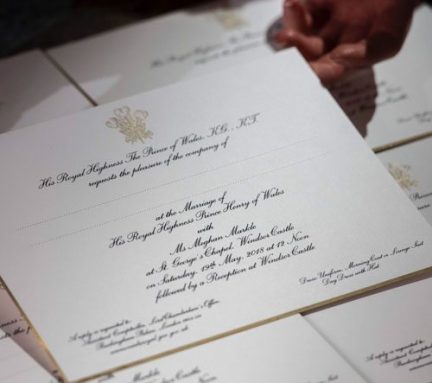 His Royal Highness The Prince of Wales, K.G., K.T.
requests the pleasure of the company of
at the Marriage of
His Royal Highness Prince Henry of Wales
with
Ms Meghan Markle
at St. George's Chapel, Windsor Castle
on Saturday, 19th May, 2018 at 12 Noon
followed by a Reception at Windsor Castle
A reply is requested to
Comptroller, Lord Chamberlain's Office
Buckingham Palace, London
Dress: Uniform, Morning Coat or Lounge Suit
Day Dress with Hat
His Royal Highness
requests the pleasure
Windsor Castle
A reply is requested to
Meghan Markle